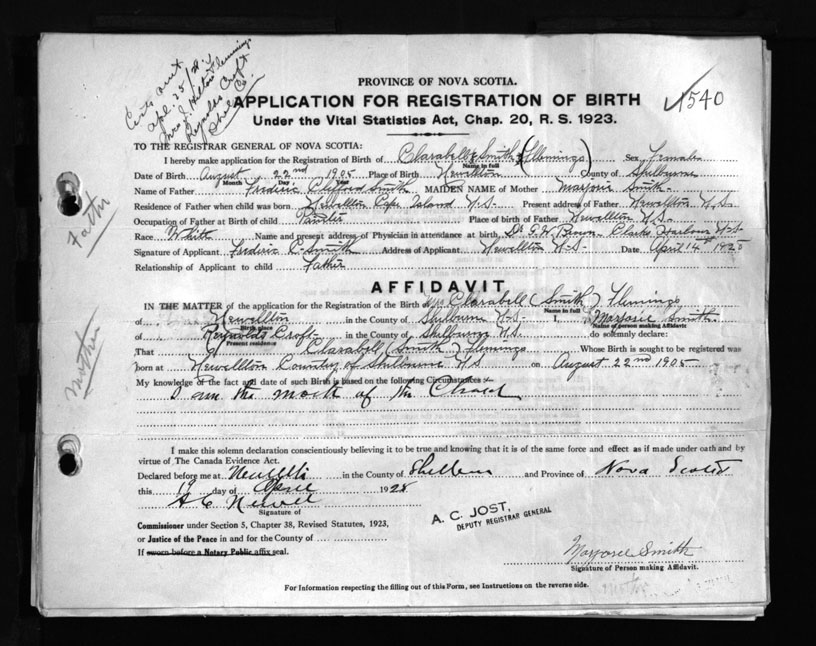 Certs sent
Apl 25/28 to
Mrs J. Hilton Flemings
Reynolds Croft
Shel. Co.
PROVINCE OF NOVA SCOTIA.
APPLICATION FOR REGISTRATION OF BIRTH
1540
Under the Vital Statistics Act, Chap. 20, R. S. 1923.
TO THE REGISTRAR GENERAL OF NOVA SCOTIA:
I hereby make application for the Registration of Birth of Clarabell Smith (Flemings) Sex Female
Name in full
Date of Birth August 22nd 1905 Place of Birth Newellton County of Shelburne
Month Day Year
Name of Father Frederic Clifford Smith MAIDEN NAME of Mother Marjorie Smith
Residence of Father when child was born Newellton Cape Island N.S. Present address of Father Newellton N.S.
Occupation of Father at Birth of child Place of birth of Father Newellton N.S.
Race White Name and present address of Physician in attendance at birth, Dr. Brown Clarks Harbour N.S.
Signature of Applicant Frederic C. Smith Address of Applicant Newellton N.S. Date April 14th 1928
Relationship of Applicant to child Father
Father
AFFIDAVIT
IN THE MATTER of the application for the Registration of the Birth of Clarabell (Smith) Flemings
Name in full
of Newellton in the County of Shelburne N.S. I, Marjorie Smith
Birth place Name of person making Affidavit
of Reynolds Croft in the County of Shelburne N.S. do solemnly declare:
Present residence
That Clarabell (Smith) Flemings Whose Birth is sought to be registered was
born at Newellton County of Shelburne N.S on August 22nd 1905
Mother
My knowledge of the fact and date of such Birth is based on the following Circumstances:
I am the moth of the Chaed
I make this solemn declaration conscientiously believing it to be true and knowing that it is of the same force and effect as if made under oath and by
virtue of The Canada Evidence Act.
Declared before me at in the County of Shelburn and Province of Nova Scotia
this 19 day of April 1928
A C Newell
Signature of
A. C. JOST,
DEPUTY REGISTRAR GENERAL
Commissioner under Section 5, Chapter 38, Revised Statutes, 1923,
or Justice of the Peace in and for the County of
If sworn before a Notary Public affix seal.
Marjorie Smith
Signature of Person making Affidavit.
Mother
For Information respecting the filling out of this Form, see Instructions on the reverse side.